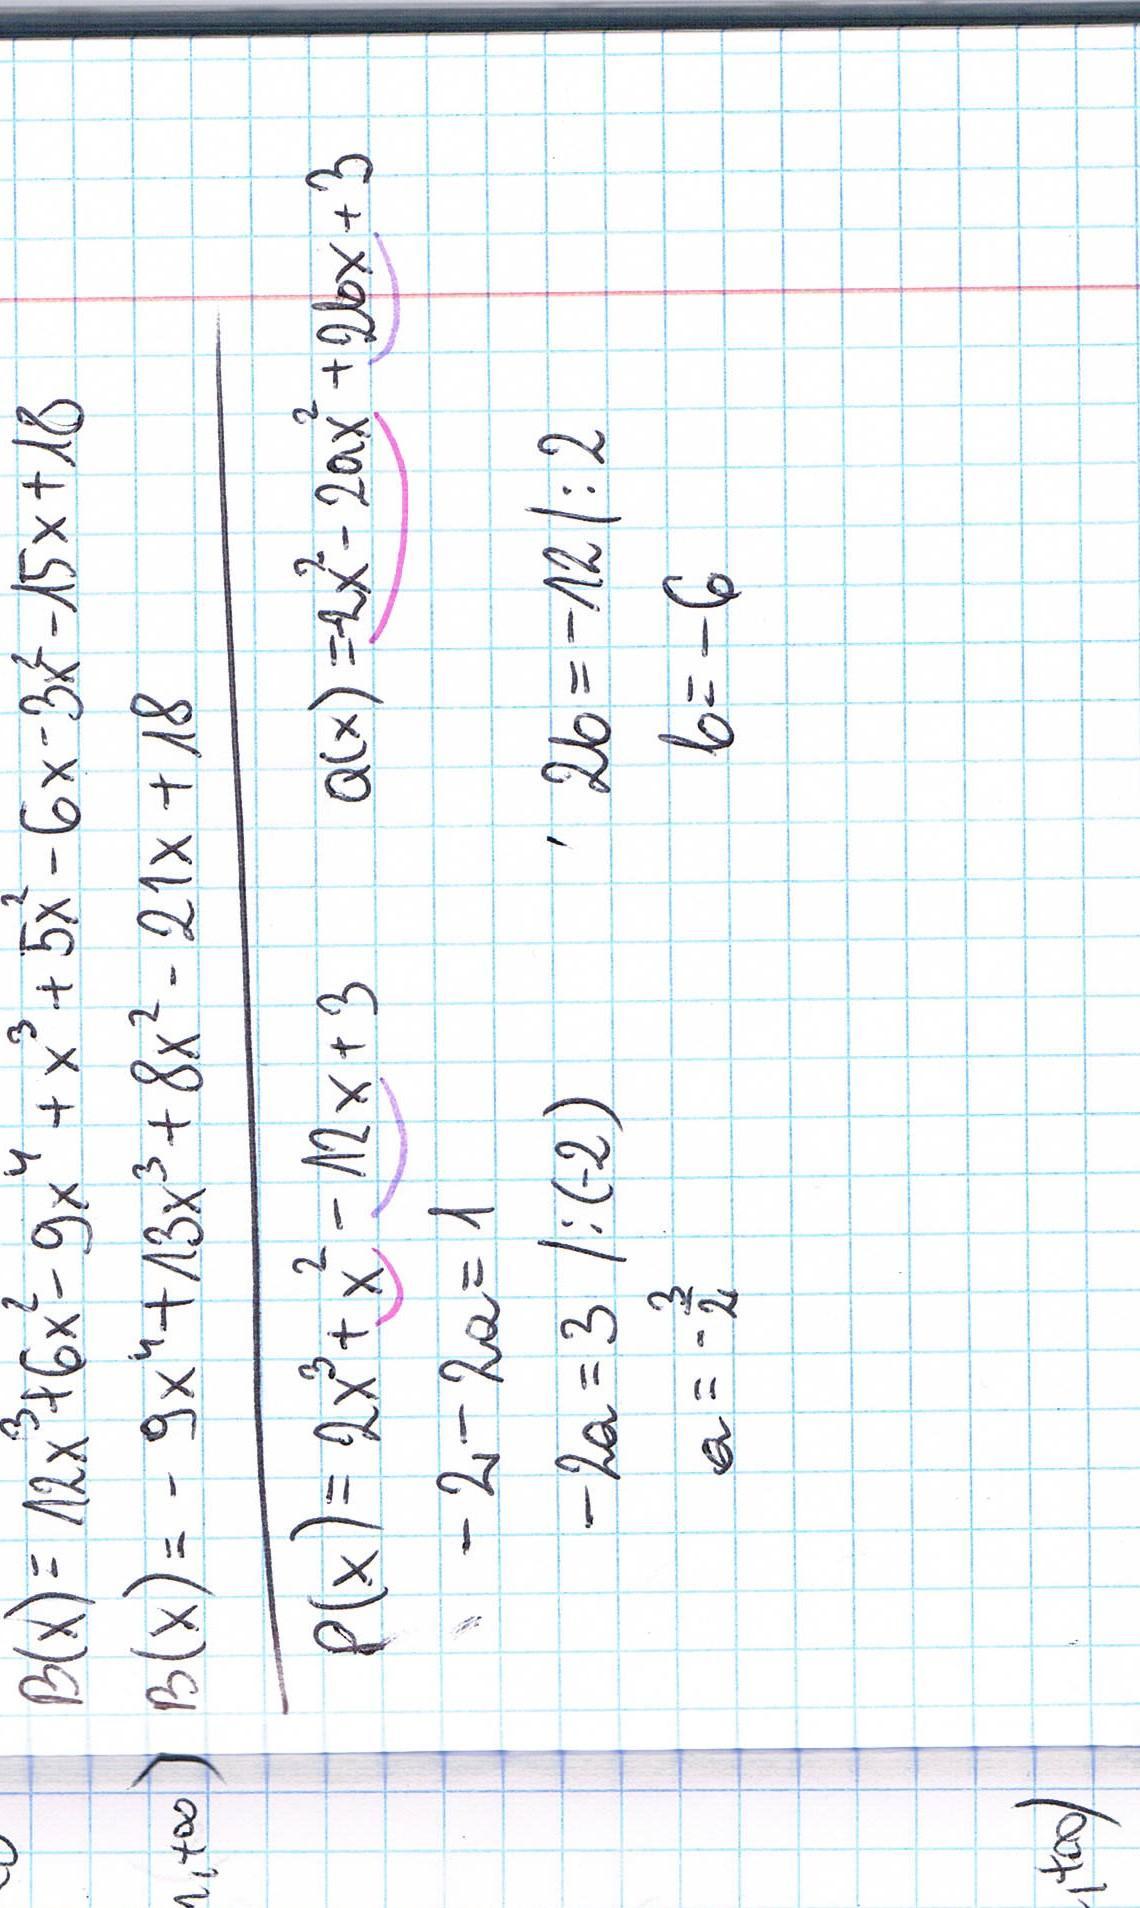 B(x) = 12x³+6x²-9x⁴+x³+5x²-6x-3x²-15x+18
B(x) = -9x⁴+13x³+8x²-21x+18
P(x) = 2x³+x²-12x+3 Q(x) =-2x²-2ax²+2bx+3
-2-2a=1
-2a=3 /:(-2) 2b=-12 /:2
a=-3/2 b=-6
,+∞)
,+∞)